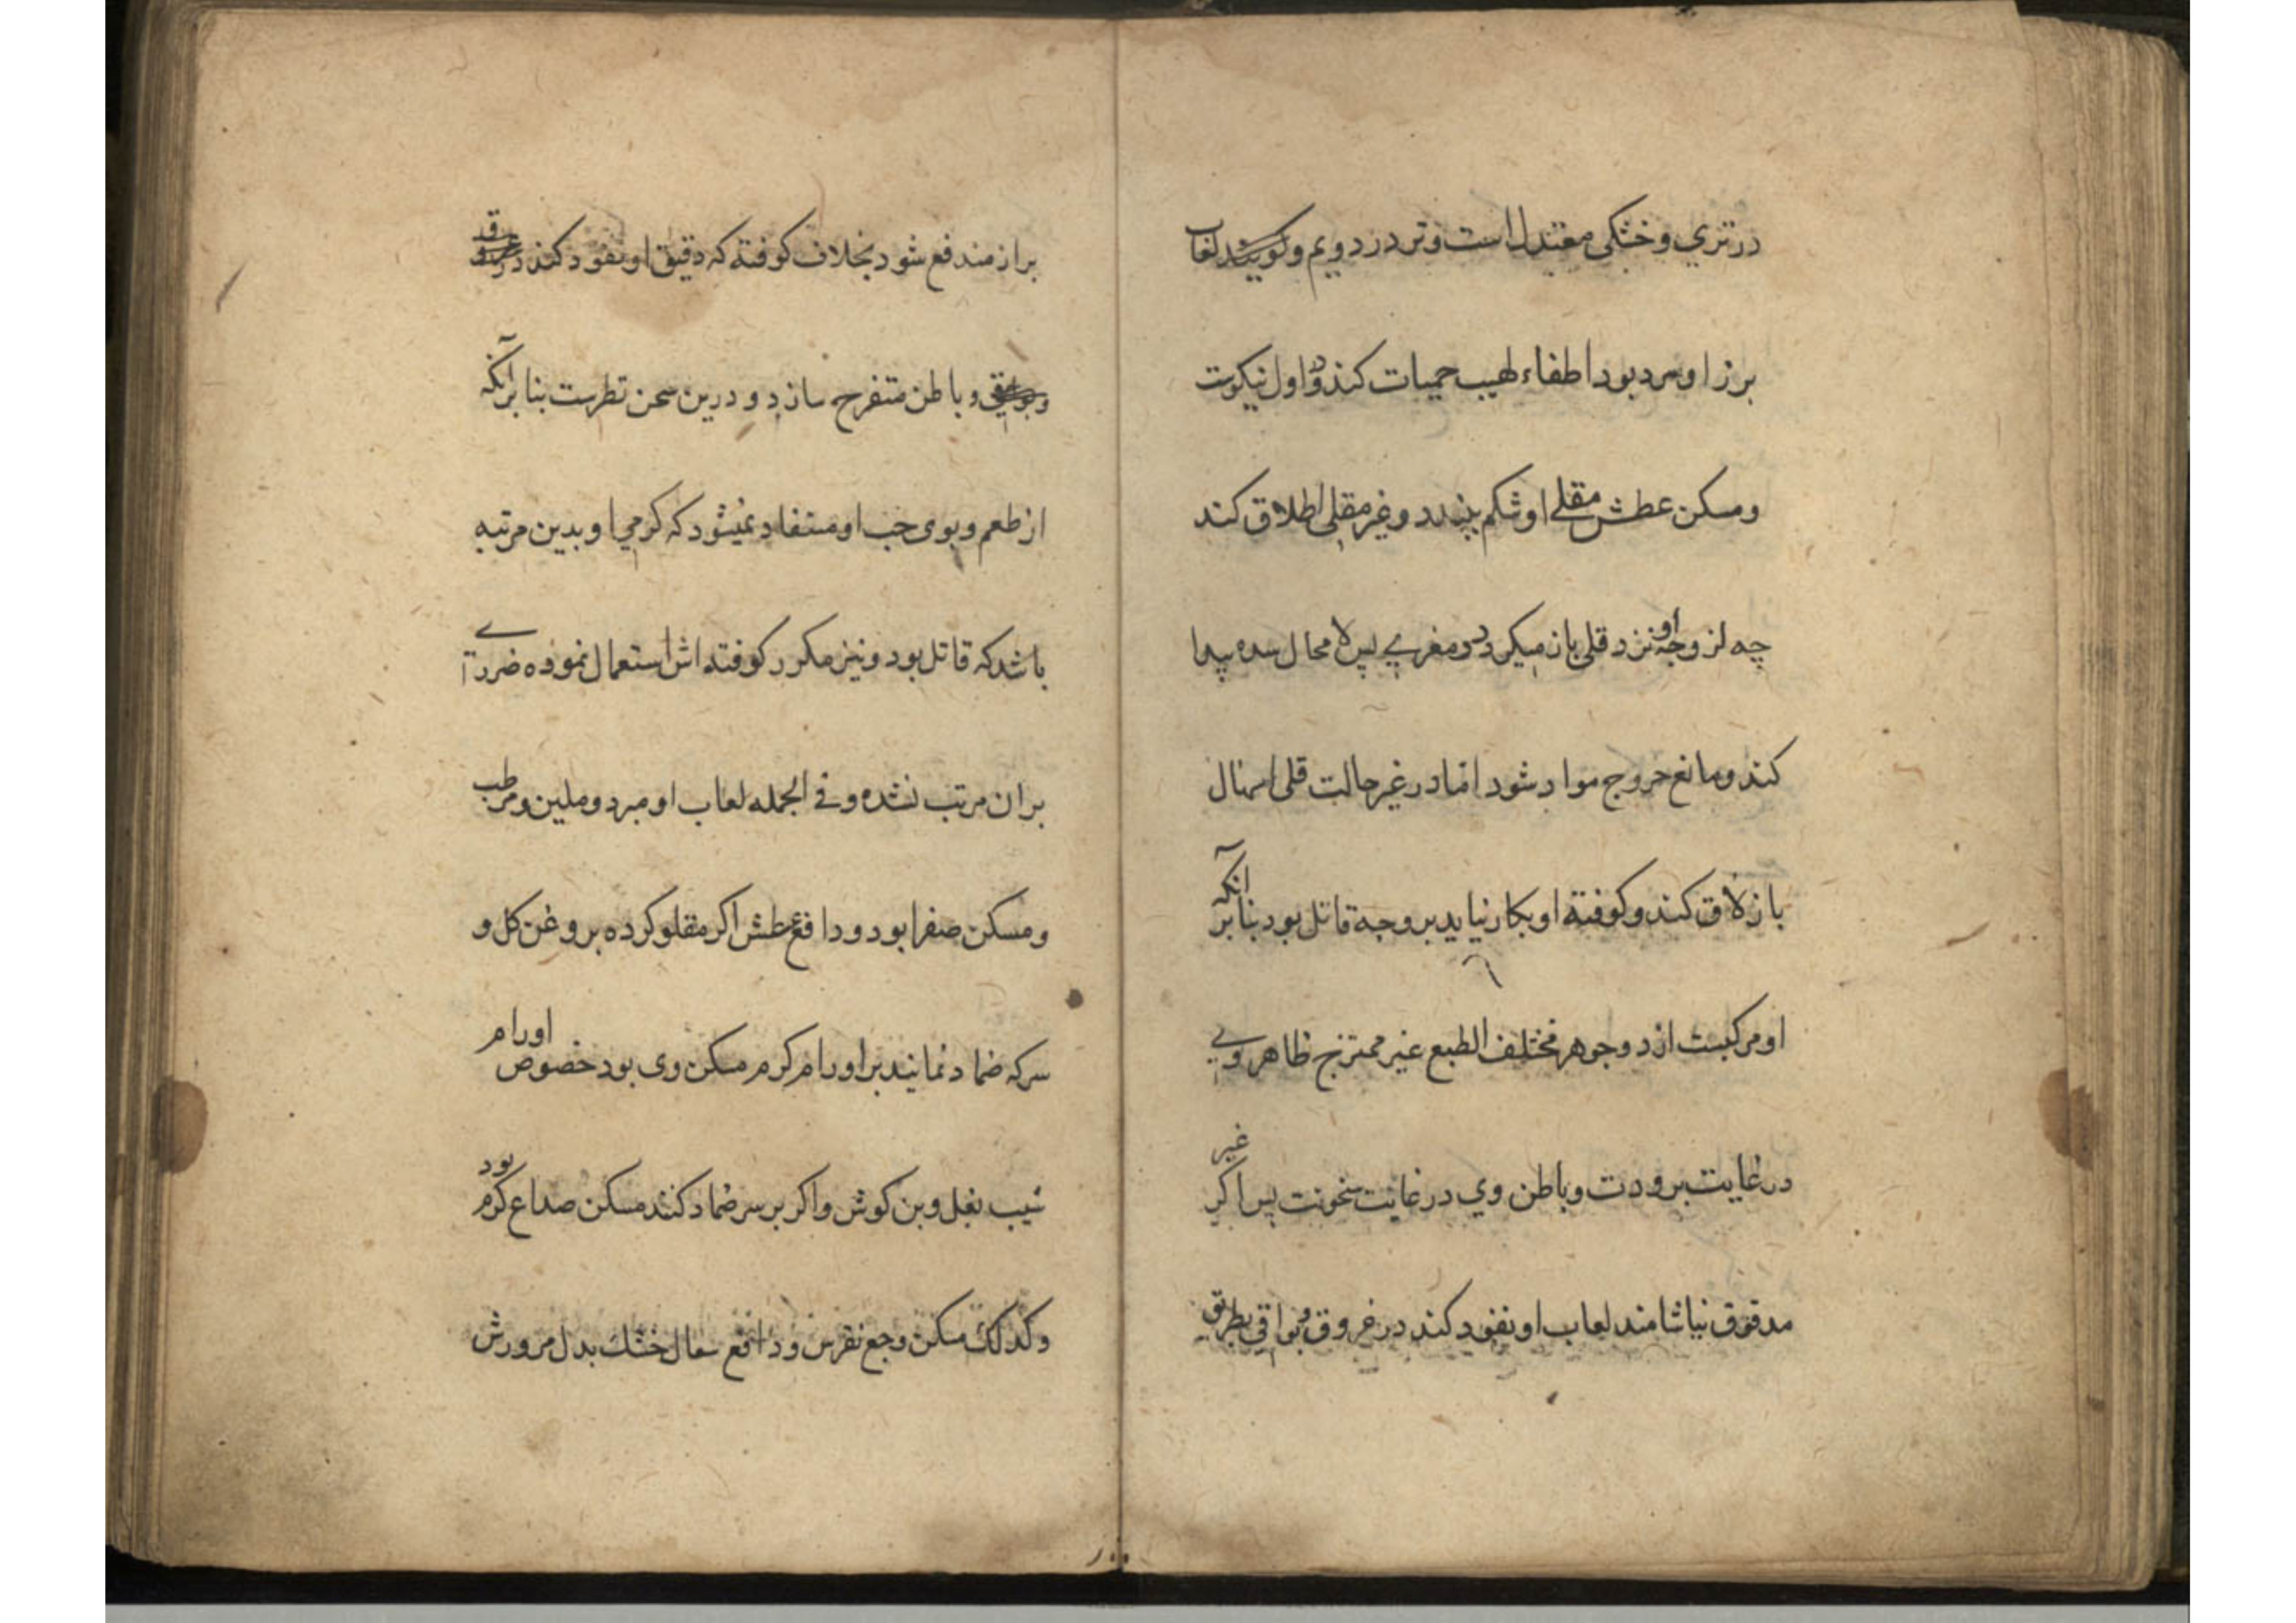 در تري و خشکی معتدل است و تر در دویم و کویند لعاب
برز او سرد بود اطفاء لهیب حمیات کند و اول نیکوست
و مسکن عطش مقلے او شکم بندد و غیر مقلی اطلاق کند
چه لزوجة او نزد قلی باز میکردد و مغرے پس لا محال سده پیدا
کند و مانع خروج مواد شود اما در غیر حالت قلی اسهال
بازلاق کند و کوفته او بکار نیاید بر وجه قاتل بود بنا بر آنکه
او مرکبست از دو جوهر مختلف الطبع غیر ممتزج ظاهر وے
در غایت برودت و باطن وي در غایت سخونت پس اکر غیر
مدقوق بیاشامند لعاب او نفود کند در عروق و بواقی بطریق
براز مندفع شود بخلاف کوفته که دقیق او نفود کند در عروق
و باطن متفرح سازد و درین سخن نظرست بنا بر آنکه
از طعم و بوی حب او مستفاد نمیشود که کرمي او بدین مرتبه
باشد که قاتل بود و نیز مکرر کوفته اش استعمال نموده ضررے
بران مرتب نشده و فے الجمله لعاب او مبرد و ملین و مرطب
و مسکن صفرا بود و دافع عطش اکر مقلو کرده بروغن کل و
سرکه ضماد نمایند بر اورام کرم مسکن وی بود خصوص اورام
شیب بغل و بن کوش و اکر بر سر ضماد کنند مسکن صداع کرم بود
و کذلک مسکن وجع نقرس و دافع سعال خشك بدل مرورش